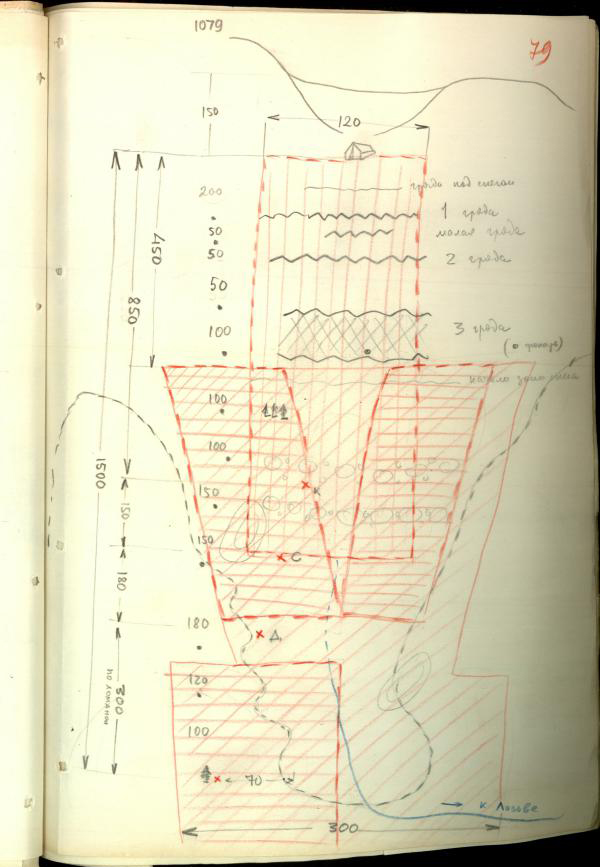 1079
79
150
120
200
гряда под снегом
1 гряда
50
малая гряда
50
2 гряда
450
50
850
100
3 гряда
(• фонарь)
начало
100
100
1500
150
К
150
150
С
180
180
Д
300
по ломаной
120
100
70
→ к Лозьве
300